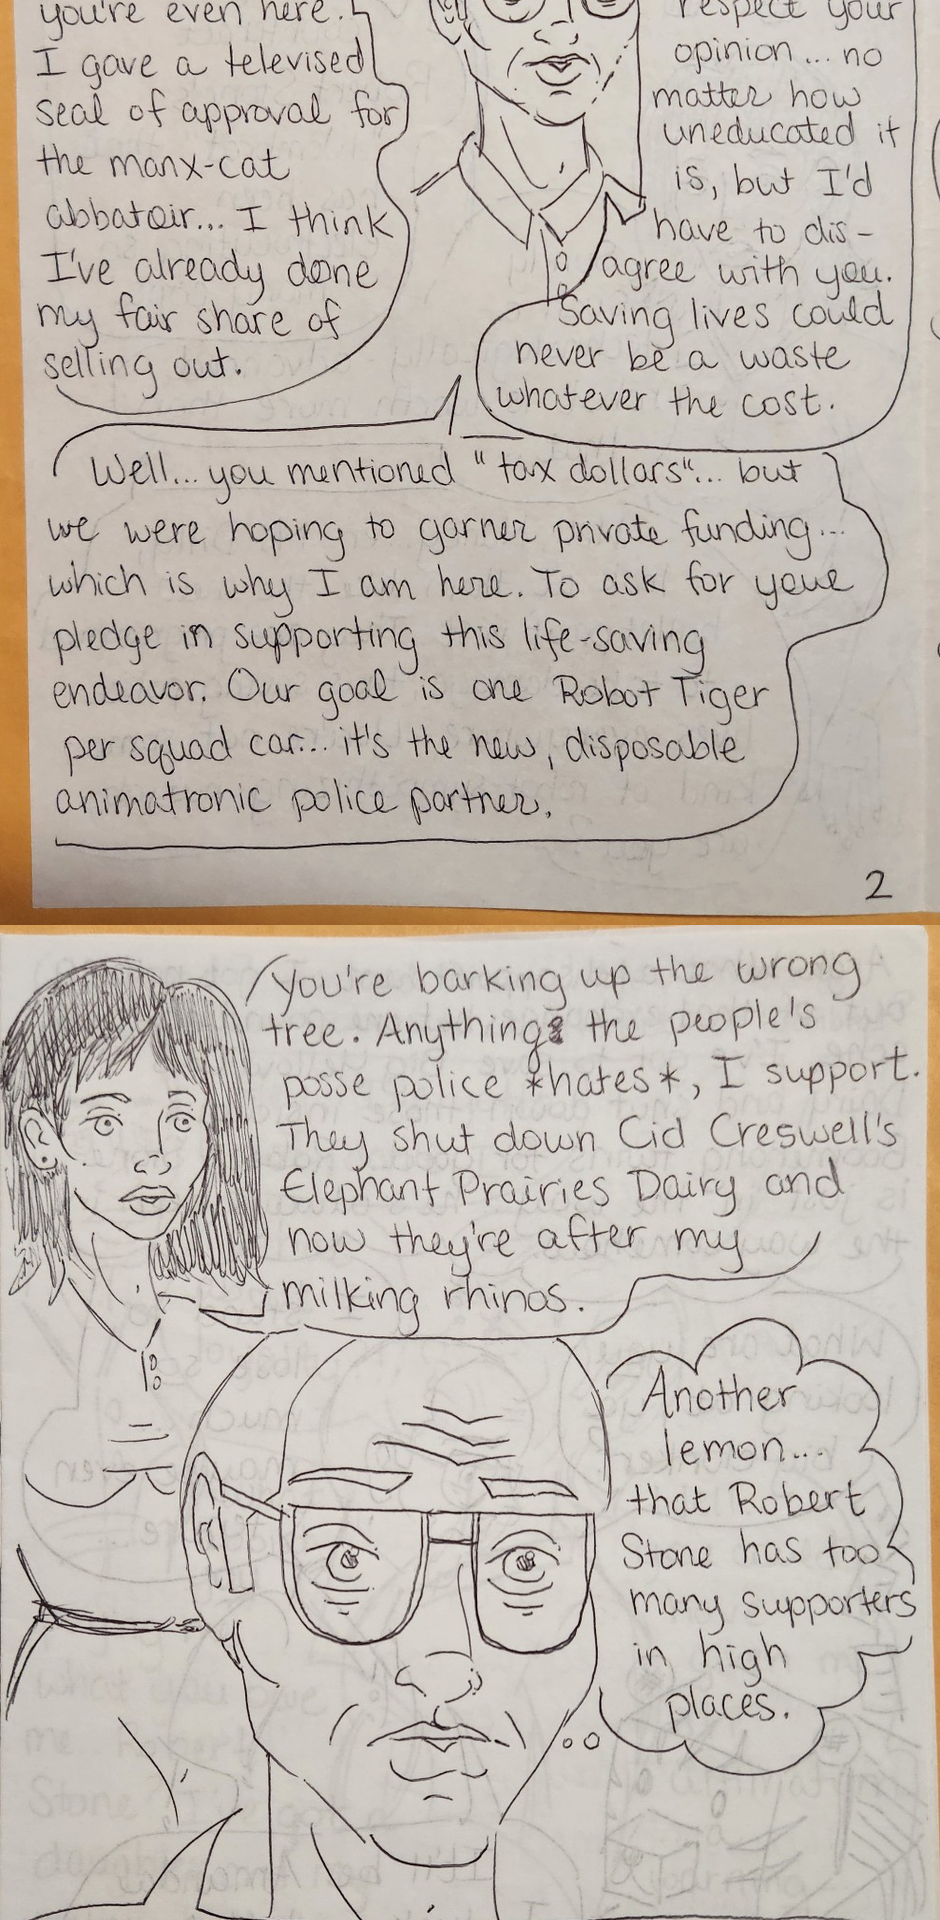 you're even here.
I gave a televised
seal of approval for
the manx-cat
abbatoir... I think
I've already done
my fair share of
selling out.
respect your
opinion... no
matter how
uneducated it
is, but I'd
have to dis-
agree with you.
Saving lives could
never be a waste
whatever the cost.
Well... you mentioned "tax dollars"... but
we were hoping to garner private funding...
which is why I am here. To ask for your
pledge in supporting this life-saving
endeavor. Our goal is one Robot Tiger
per squad car... it's the new, disposable
animatronic police partner.
2
You're barking up the wrong
tree. Anything the people's
posse police *hates*, I support.
They shut down Cid Creswell's
Elephant Prairies Dairy and
now they're after my
milking rhinos.
Another
lemon...
that Robert
Stone has too
many supporters
in high
places.